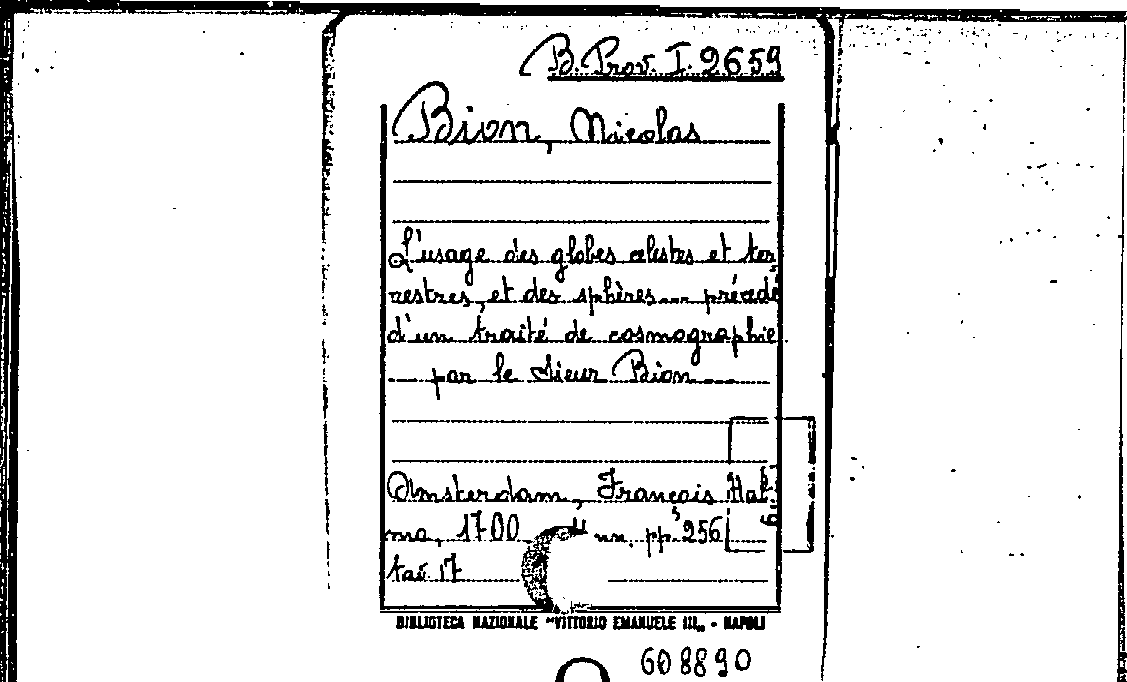 B. Prov. I. 2659
Bion, Nicolas
L'usage des globes célestes et ter
restres, et des sphères... précédé
d'un traité de cosmographie
... par le Sieur Bion ...
Amsterdam, François Hal-
ma, 1700 nn. pp. 256
tav. 17
BIBLIOTECA NAZIONALE "VITTORIO EMANUELE III„ - NAPOLI
608890